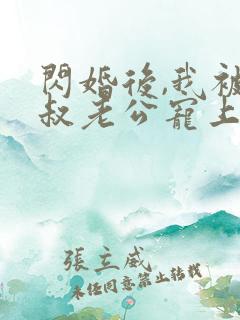 閃婚後,我被
叔老公寵上
張立威
未經同意禁止轉載